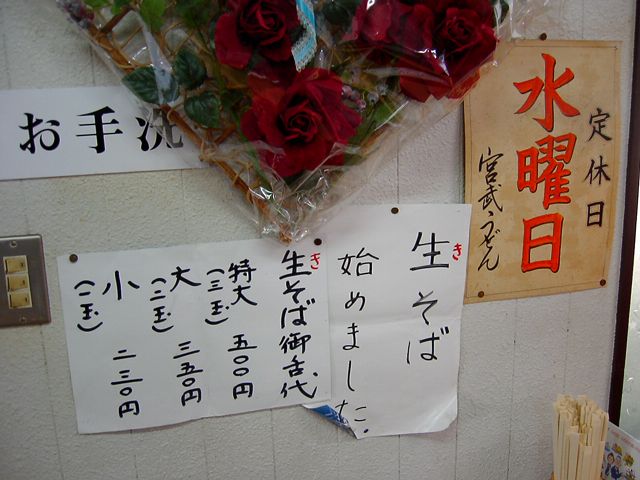 お手洗
定休日
水曜日
宮武うどん
生そば
き
始めました。
生そば御舌代
き
特大 五〇〇円
(三玉)
大 三五〇円
(二玉)
小 二三〇円
(一玉)